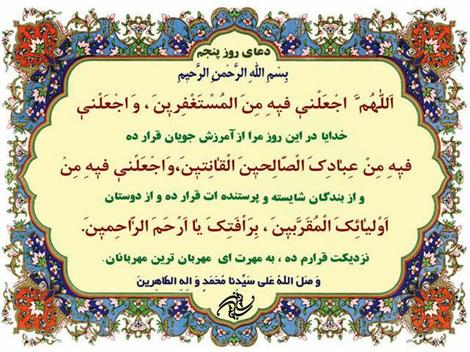 دعای روز پنجم
بِسْمِ اللهِ الرَّحْمنِ الرَّحیمِ
اَللّهُمَّ اجْعَلْنی فیهِ مِنَ المُسْتَغْفِرینَ ، وَ اجْعَلْنی
خدایا در این روز مرا از آمرزش جویان قرار ده
فیهِ مِنْ عِبادِکَ الْصّالِحینَ الْقانِتینَ،وَاجْعَلْنی فیهِ مِنْ
و از بندگان شایسته و پرستنده ات قرار ده و از دوستان
اَوْلِیائِکَ الْمُقَرَّبینَ ، بِرَأفَتِکَ یا اَرْحَمَ الرّاحِمینَ.
نزدیکت قرارم ده ، به مهرت ای مهربان ترین مهربانان.
وَ صَلَ اللهُ عَلی سَیِّدِنا مُحَمَد وَ الِهِ الطّاهِرینَ